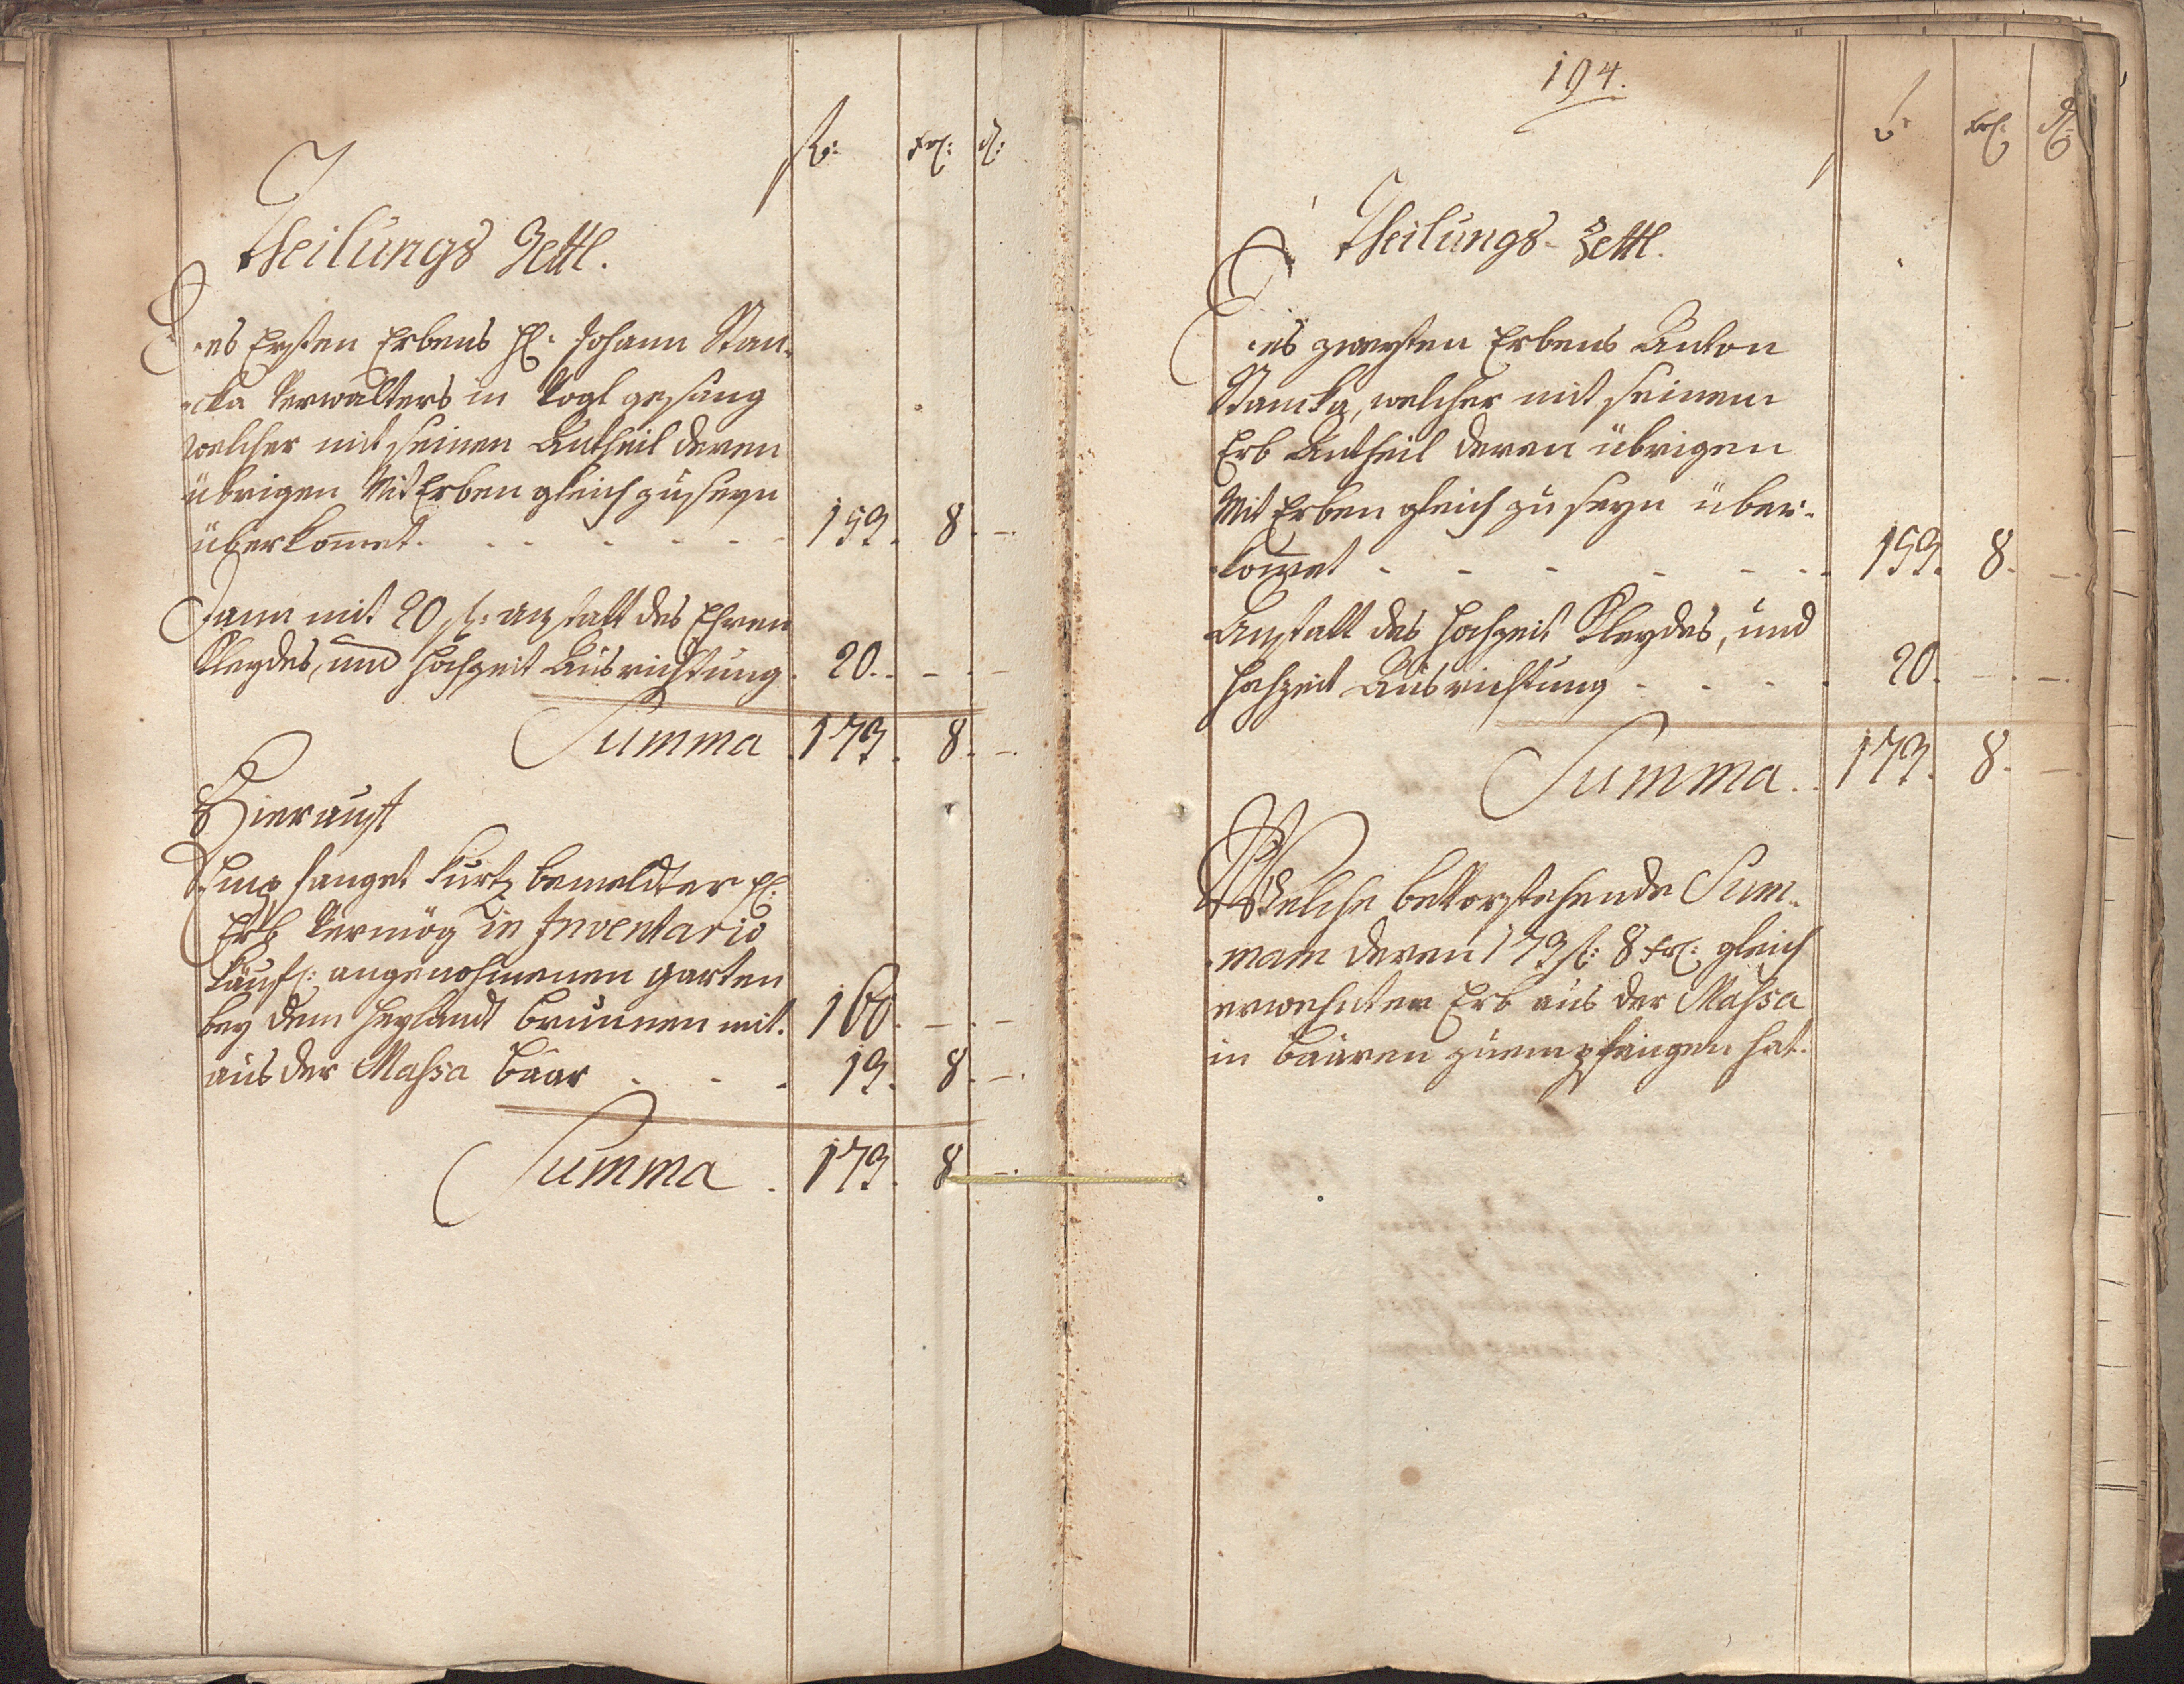 fl: xr: d:
Theilungs Zettl.
Des Ersten Erbens H: Johann Stan-
-cka Verwalters in Vogl gesang
welcher mit seinen Antheil deren
übrigen Mit Erben gleich zu seyn
überkom̄et. - - - - - 153. 8. -.
Dann mit 20 f: anstatt des Ehren
Kleydes, und Hochzeit Ausrichtung. 20. - -
Summa . 173. 8. -.
Hierauf
Empfanget kurtz bemeldter H:
Erb Vermög in Inventario
käufl: angenohmenen garten
bey dem Heylandt brunnen mit. 160. - -
aus der Massa baar - - - 13. 8. -.
Summa . 173. 8 -.
194.
f: xr: d:
Theilungs-Zettl.
Des zweyten Erbens Anton
Stancka, welcher mit seinem
Erb Antheil deren übrigen
Mit Erben gleich zu seyn über-
-kom̄et - - - - - - 153. 8. -.
Anstatt des Hochzeit Kleydes, und
Hochzeit Ausrichtung - - - . 20. - . -.
Summa . . 173. 8. -.
Welche bevorstehende Sum-
-mam deren 173 f: 8 xr: gleich
erwehnter Erb aus der Massa
in baaren zu empfangen hat.